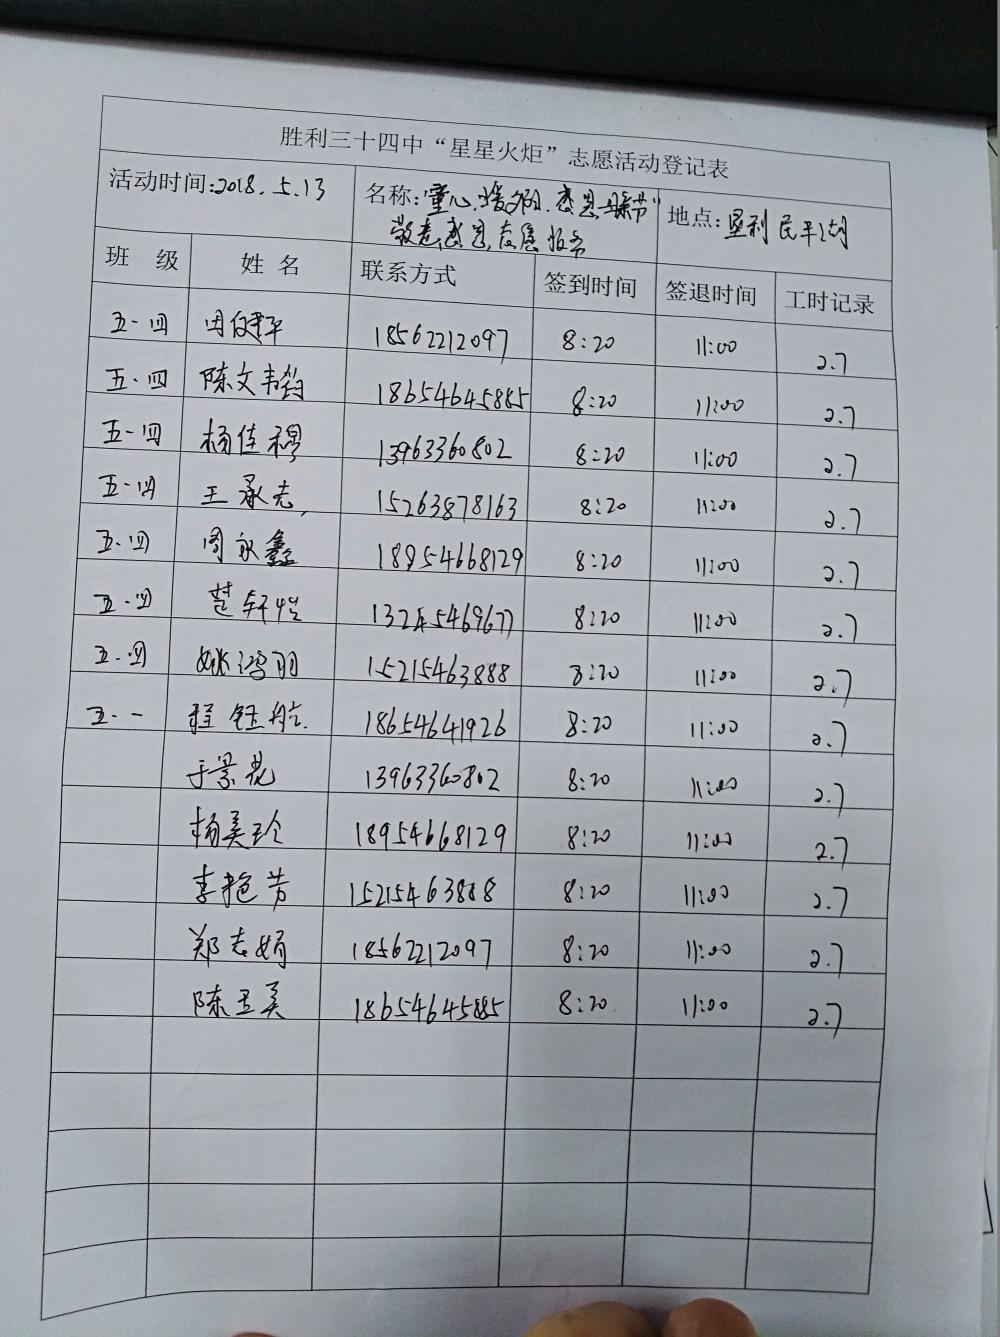 胜利三十四中“星星火炬”志愿活动登记表
活动时间:2018.5.13 名称:“童心暖夕阳.感恩母亲节” 地点:垦利民丰湖
敬老感恩志愿服务
班 级 姓 名 联系方式 签到时间 签退时间 工时记录
五·四 18562212097 8:20 11:00 2.7
五·四 陈文韩 18654645885 8:20 11:00 2.7
五·四 杨佳穆 13963360802 8:20 11:00 2.7
五·四 王承志 15263878163 8:20 11:00 2.7
五·四 周永鑫 18954668129 8:20 11:00 2.7
五·四 楚轩恺 8:20 11:00 2.7
五·四 姚鸿羽 15215463888 8:20 11:00 2.7
五·一 程钰航 18654641926 8:20 11:00 2.7
于景花 13963360802 8:20 11:00 2.7
杨美玲 18954668129 8:20 11:00 2.7
李艳芳 15215463888 8:20 11:00 2.7
郑志娟 18562212097 8:20 11:00 2.7
陈卫美 18654645885 8:20 11:00 2.7